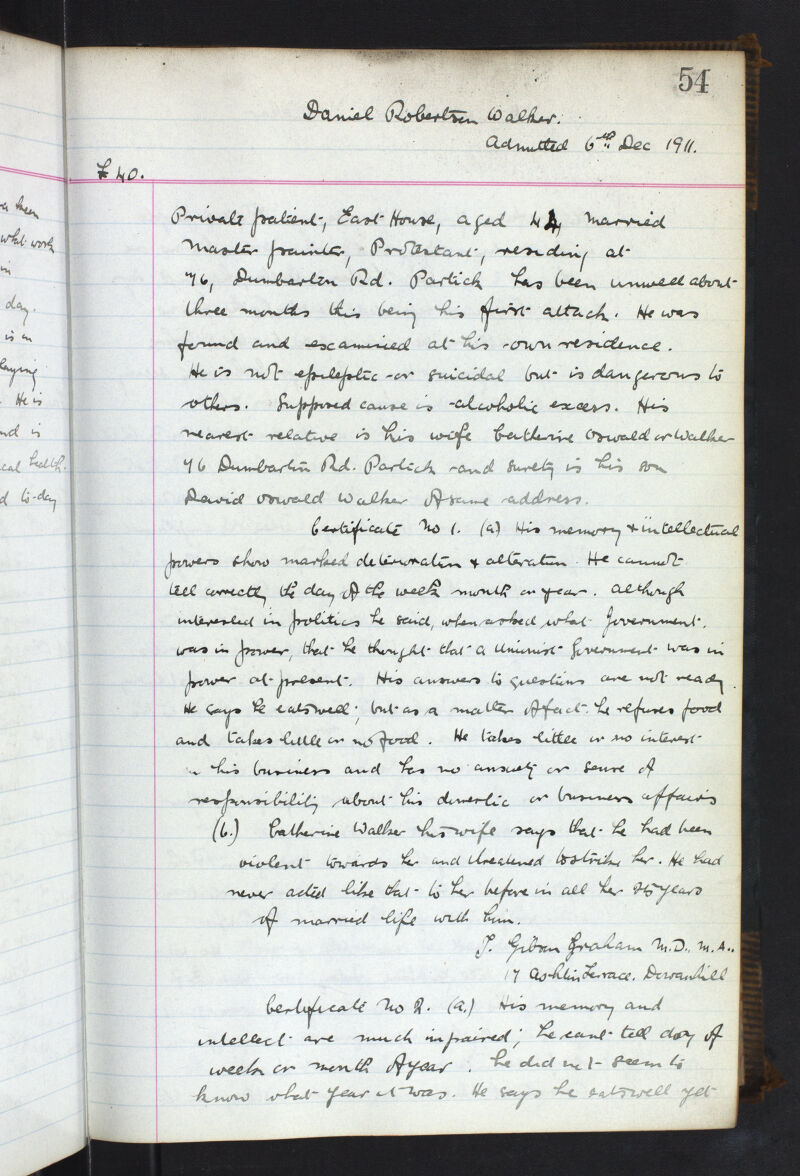 54
Daniel Robertson Walker.
Admitted 6th Dec 1911.
£40.
Private patient, East House, aged 44, married
master painter, Protestant, residing at
76, Dumbarton Rd. Partick has been unwell about
three months this being his first attack. He was
found and examined at his own residence.
He is not epileptic or suicidal but is dangerous to
others. Supposed cause is alcoholic excess. His
nearest relative is his wife Catherine Oswald or Walker
76 Dumbarton Rd. Partick and surety is his son
David Oswald Walker of same address.
Certificate No 1. (a) His memory & intellectual
powers show marked deterioration & alteration. He cannot
tell correctly the day of the week month or year. Although
interested in politics he said, when asked what Government
was in power, that he thought that a Unionist Government was in
power at present. His answers to questions are not ready.
He says he eats well, but as a matter of fact he refuses food
and takes little or no food. He takes little or no interest
in his business and has no anxiety or sense of
responsibility about his domestic or business affairs
(b.) Catherine Walker his wife says that he had been
violent towards her and threatened to strike her. He had
never acted like that to her before in all her 25 years
of married life with him.
J. Gibson Graham M.D., M.A..
17 Ashton Terrace. Dowanhill
Certificate No 2. (a.) His memory and
intellect are much impaired; he can't tell day of
week or month of year. he did not seem to
know what year it was. He says he eats well yet
a been
what work
in
day.
is in
laying
He is
nd is
cal health.
d to-day